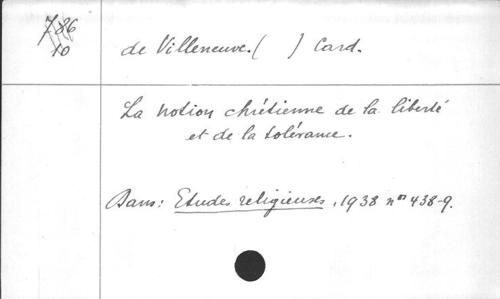 786
10
de Villeneuve. ( ) Card.
La notion chrétienne de la liberté
et de la tolérance.
Dans: Etudes religieuses, 1938 nos 438-9.